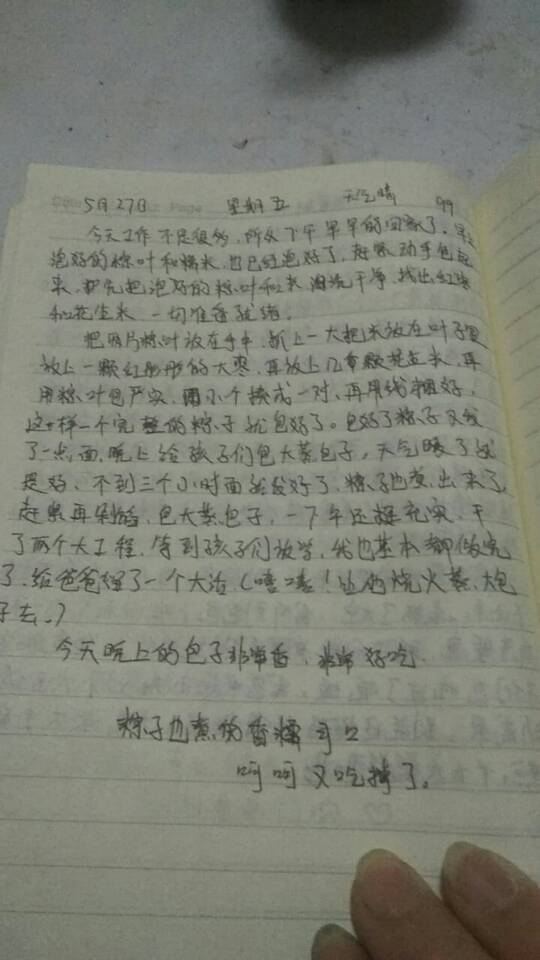 5月27日 星期五 天气晴 99
今天工作不是很多,所以下午早早的回家了。早上
泡好的粽叶和糯米,也已经泡好了,赶紧动手包起
来,我先把泡好的粽叶和米清洗干净,找出红枣
和花生米 一切准备就绪.
把两片粽叶放在手中,抓上一大把米放在叶子里
放上一颗红彤彤的大枣,再放上几颗花生米,再
用粽叶包严实,两个小揍成一对,再用线捆好,
这样一个完整的粽子就包好了。包好了粽子又发
了一点面,晚上给孩子们包大蒸包子,天气暖了就
是好,不到三个小时面就发好了,粽子也煮出来了,
赶紧再剁馅,包大蒸包子,一下午还挺充实,干
了两个大工程,等到孩子们放学,我也基本都做完
了,给爸爸留了一个大活(嘻嘻!让他烧火蒸大包
子去.)
今天晚上的包子非常香,非常好吃.
粽子也煮的香糯可口
呵呵 又吃撑了。